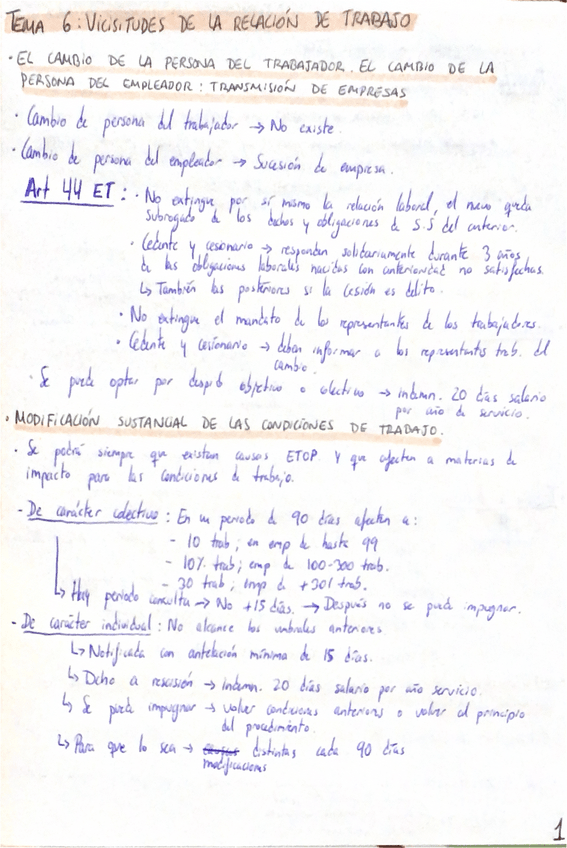 TEMA 6: VICISITUDES DE LA RELACIÓN DE TRABAJO
· EL CAMBIO DE LA PERSONA DEL TRABAJADOR. EL CAMBIO DE LA
PERSONA DEL EMPLEADOR: TRANSMISIÓN DE EMPRESAS
· Cambio de persona del trabajador → No existe.
· Cambio de persona del empleador → Sucesión de empresa.
Art 44 ET: · No extingue por sí mismo la relación laboral, el nuevo queda
subrogado de los dchos y obligaciones de S.S del anterior.
· Cedente y cesionario → responden solidariamente durante 3 años
de las obligaciones laborales nacidas con anterioridad no satisfechas.
↳ También las posteriores si la cesión es delito.
· No extingue el mandato de los representantes de los trabajadores.
· Cedente y cesionario → deben informar a los representantes trab. del
cambio.
· Se puede optar por despido objetivo o colectivo → indemn. 20 días salario
por año de servicio.
· MODIFICACIÓN SUSTANCIAL DE LAS CONDICIONES DE TRABAJO.
· Se podrá siempre que existan causas ETOP y que afecten a materias de
impacto para las condiciones de trabajo.
- De carácter colectivo: En un periodo de 90 días afecten a:
- 10 trab; en emp de hasta 99
- 10% trab; emp de 100-300 trab.
- 30 trab; emp de +301 trab.
↳ Hay periodo consulta → No +15 días. → Después no se puede impugnar.
- De carácter individual: No alcance los umbrales anteriores.
↳ Notificada con antelación mínima de 15 días.
↳ Dcho a rescisión → Indemn. 20 días salario por año servicio.
↳ Se puede impugnar → volver condiciones anteriores o volver al principio
del procedimiento.
↳ Para que lo sea → distintas cada 90 días
modificaciones
1